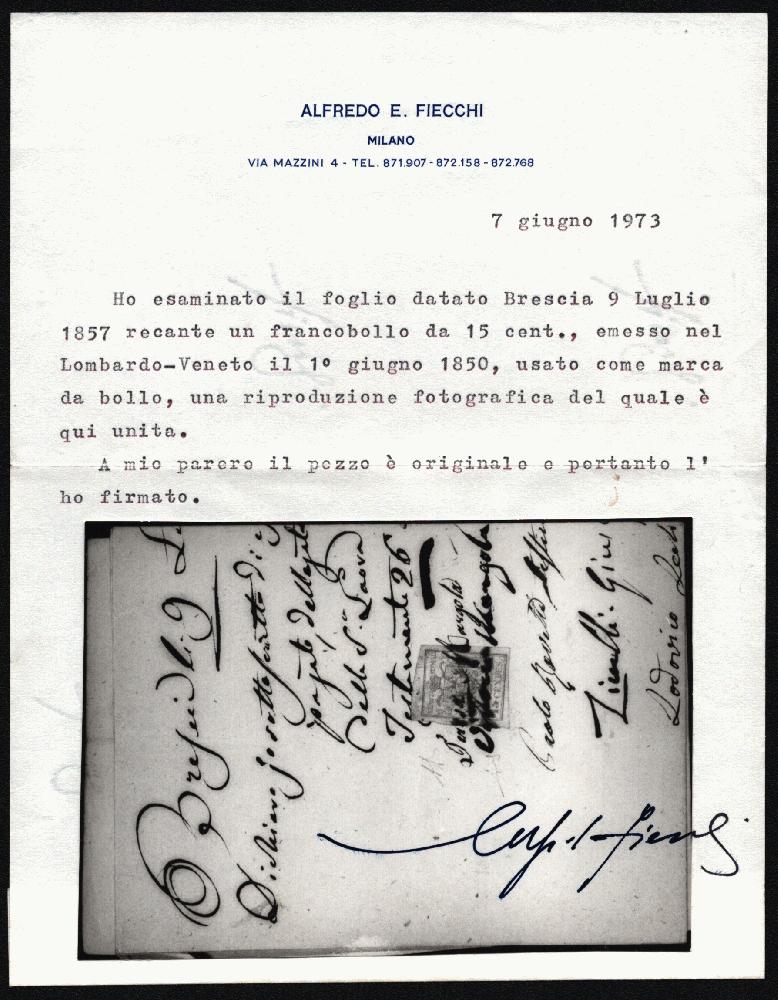 ALFREDO E. FIECCHI
MILANO
VIA MAZZINI 4 - TEL. 871.907 - 872.158 - 872.768
7 giugno 1973
Ho esaminato il foglio datato Brescia 9 Luglio
1857 recante un francobollo da 15 cent., emesso nel
Lombardo-Veneto il 1º giugno 1850, usato come marca
da bollo, una riproduzione fotografica del quale è
qui unita.
A mio parere il pezzo è originale e pertanto l'
ho firmato.
Brescia li 9
Dichiaro io sottoscritto di
pagato
della
Testamente 26
Lodovico